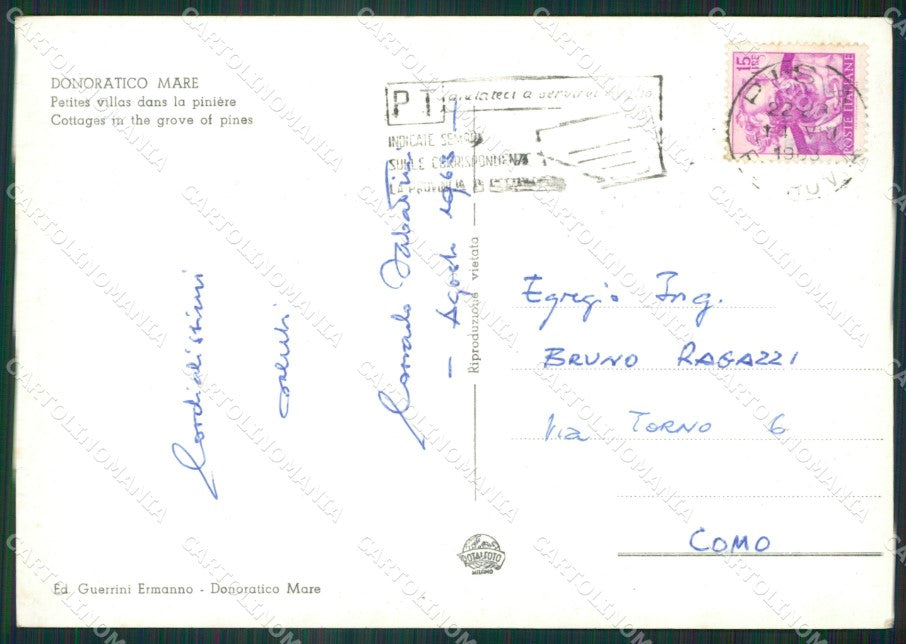 DONORATICO MARE
Petites villas dans la pinière
Cottages in the grove of pines
PT aiutateci a servirvi meglio
INDICATE SEMPRE
SULLE CORRISPONDENZE
LA PROVINCIA
15 LIRE
POSTE ITALIANE
PISA
1963
Cordialissimi
saluti
Corrado Sabatini
- Agosto 1963 -
Riproduzione vietata
Egregio Ing.
BRUNO RAGAZZI
Via TORNO 6
COMO
ROTALFOTO
MILANO
Ed. Guerrini Ermanno - Donoratico Mare
CARTOLINOMANIA